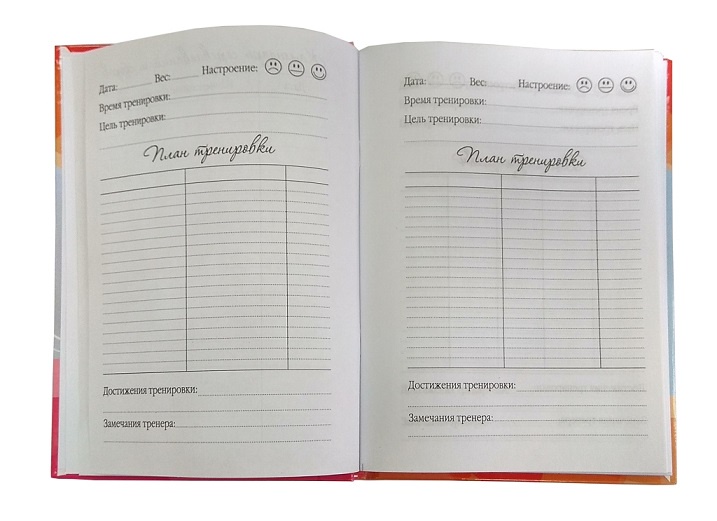 Дата: Вес: Настроение:
Время тренировки:
Цель тренировки:
План тренировки
Достижения тренировки:
Замечания тренера:
Дата: Вес: Настроение:
Время тренировки:
Цель тренировки:
План тренировки
Достижения тренировки:
Замечания тренера: